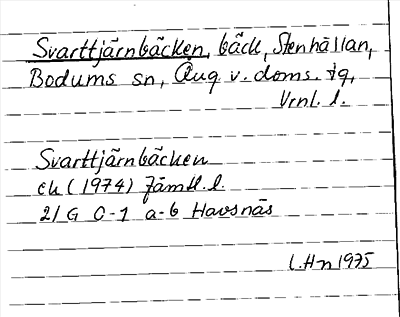 Svarttjärnbäcken, bäck, Stenhällan,
Bodums sn, Ång v. doms. tg,
Vrnl. l.
Svarttjärnbäcken
ek (1974) Jämtl. l.
21 G 0-1 a-b Havsnäs
l. Hn 1975